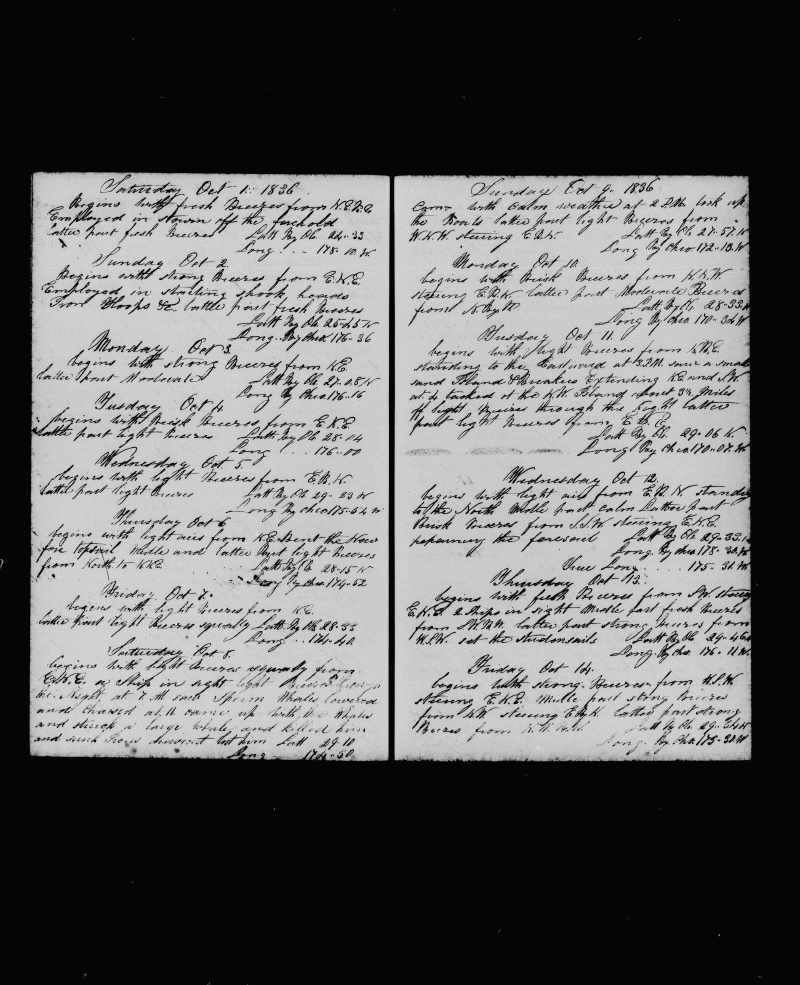 Saturday Oct 1. 1836
Begins with fresh Breezes from N.E.B.E
Employed in Stowin off the forehold
Latter part fresh Breezes Latt By Ob. 24-33
Long . . . 178-10. W
Sunday Oct 2.
Begins with strong Breezes from E.N.E.
Employed in starting shook, heads
Iron Hoops &c. latter part fresh Breezes
Latt By Ob 25-45 N
Long. By chro. 176-36
Monday Oct 3.
begins with strong Breezes from N.E
latter part Moderate Latt By Ob 27-08 N
Long By Chro 176-16
Tusday Oct 4.
begins with Brisk Breezes from E.N.E
latter part light Breezes Latt By Ob 28-14
Long . . . 176-00
Wednesday Oct 5.
begins with light Breezes from E.B.N.
latter part light Breezes Latt By Ob 29-23 N
Long By chro 175-54 W
Thursday Oct 6
begins with light airs from N.E. Bent the New
fore topsail Midle and latter Part light Breezes
from North to NNE Latt By Ob 28-15 N
Long By Chro 174-52
Friday Oct 7.
begins with light Breezes from N.E.
latter part light Breezes squaly Latt. By Ob 28-33
Long . . 174-40
Saturday Oct 8.
begins with light Breezes squaly from
E.N.E. a Ship in sight light Breezes through
the Night at 7 AM saw Sperm Whales lowered
and chased at 11 came up with the Whales
and struck a large whale and killed him
and sunk lost him Latt 29-10
Long 174-50
Sunday Oct 9. 1836
Came with Calm weather at 2 P.M. took up
the Boats latter part light Breezes from
N.N.W. steering E.B.N. Latt By Ob 27-57 N
Long By Chro. 172-13. W
Monday Oct 10.
begins with Brisk Breezes from N.N.W
steering E.B.N latter part Moderate Breezes
from N. By W Latt By Ob. 28-33 N
Long By Chro. 170-34 W
Tusday Oct 11.
begins with light Breezes from N.B.E.
standing to the Eastward at 3 P.M. saw a small
sand Island & Breakers Extending NE and S.W.
at 4 tacked of the N.W. Island about 3¼ Miles
of light Breezes through the Night latter
part light Breezes from E.B.E
Latt By Ob. 29-06 N.
Long By Chro 170-07. W
Wednesday Oct 12.
begins with light airs from E.B.N. standing
to the North Midle part calm Latter part
Brisk Breezes from S.S.W steering E.N.E.
the foresail Latt By Ob. 29-33
Long. By chro 178-30. W
True Long. . . . . 175-30. W
Thursday Oct 13.
begins with fresh Breezes from S.W. steering
E.N.E. 2 Ships in sight Midle part fresh Breezes
from S.W.B.W. latter part strong breezes from
W.S.W. set the studensails Latt By Ob 29-46 N
Long. By Chro. 176-11 W.
Friday Oct 14.
begins with strong Breezes from W.S.W
steering E.N.E. Midle part strong Breezes
from S.W steering E.B.N. latter part strong
Breezes from Latt By Ob. 29-34 N
Long. By Chro. 173-30. W